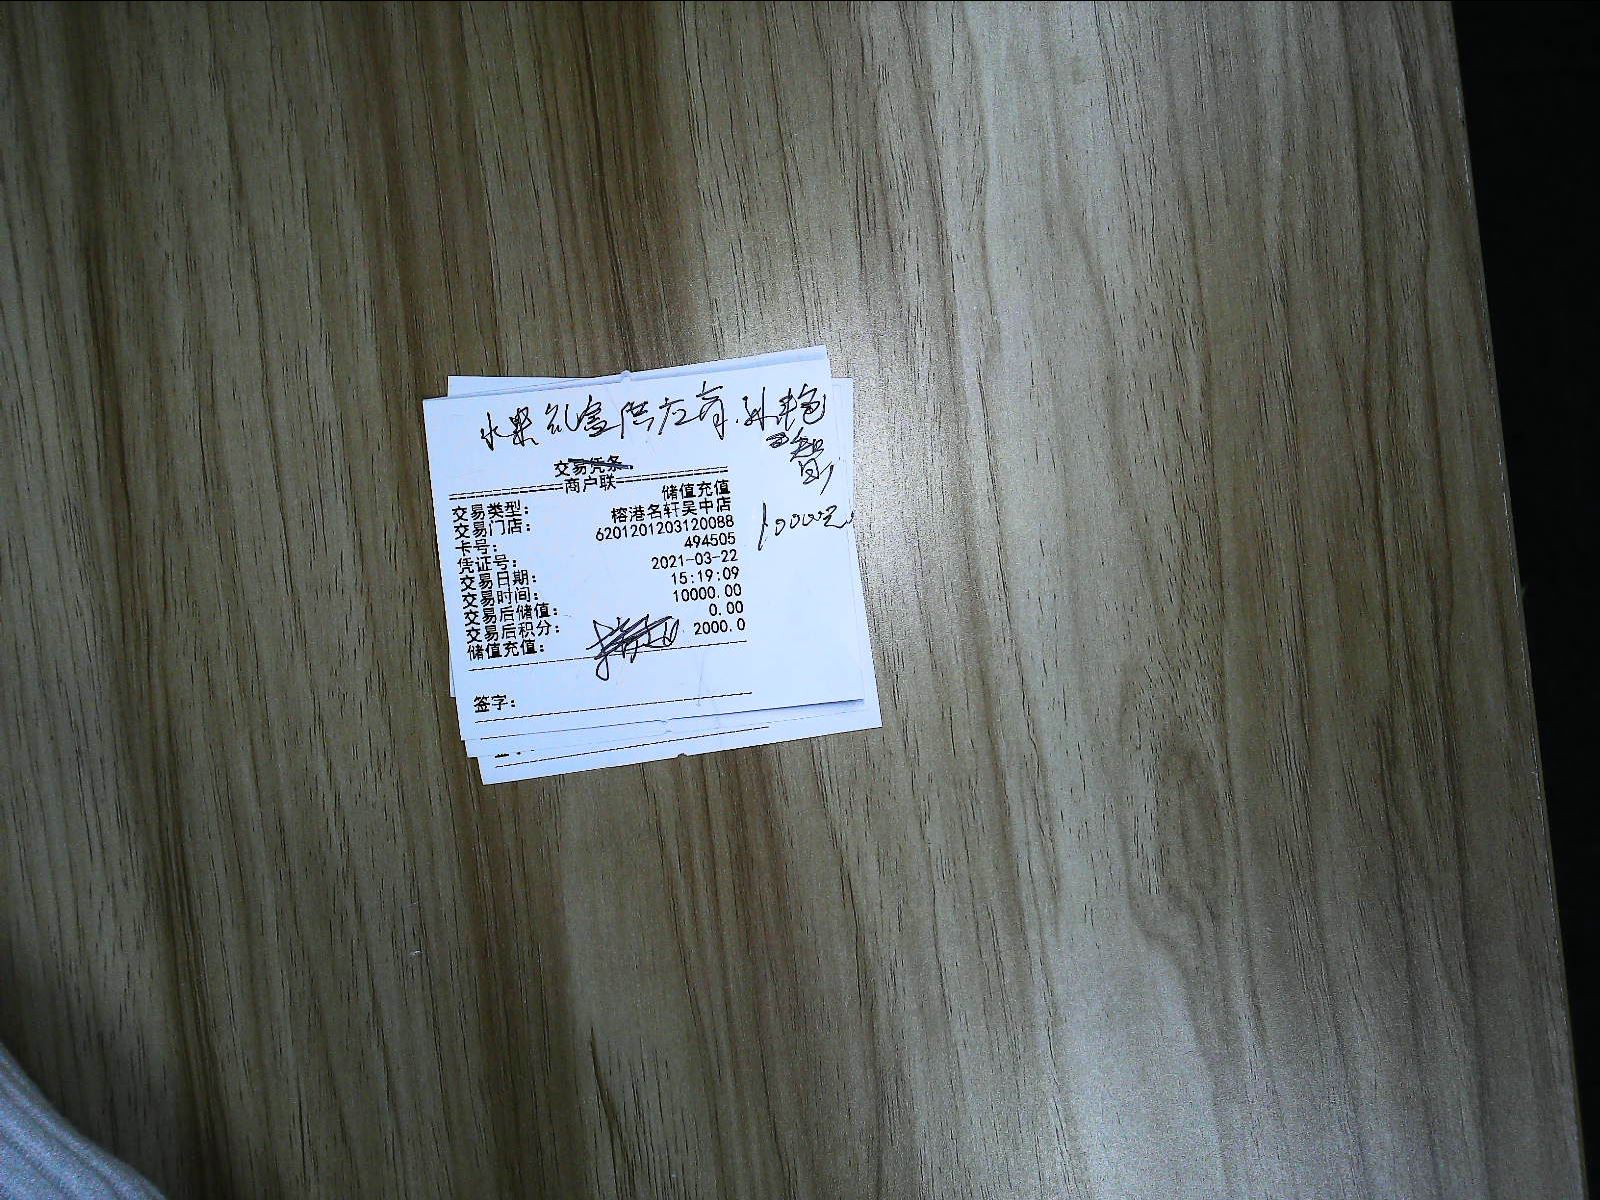 水果礼盒供应商.孙艳
10000元
交易凭条
商户联
交易类型： 储值充值
交易门店： 榕港名轩吴中店
卡号： 6201201203120088
凭证号： 494505
交易日期： 2021-03-22
交易时间： 15:19:09
交易后储值： 10000.00
交易后积分： 0.00
储值充值： 2000.0
签字：